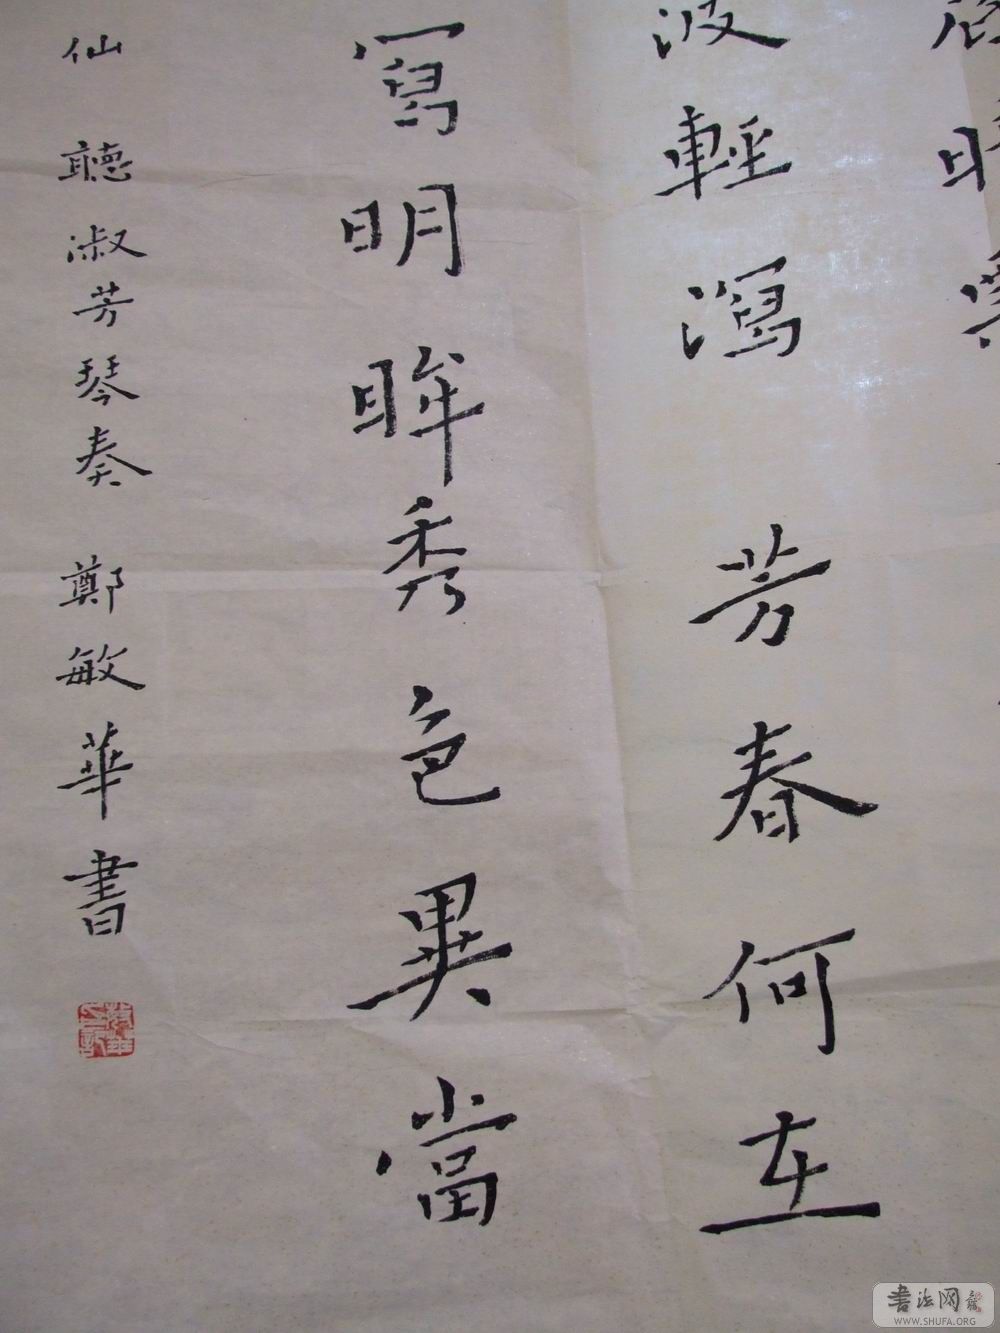 波輕瀉 芳春何在
寫明眸秀色異當
仙 聽淑芳琴奏 鄭敏華書
書法网
WWW.SHUFA.ORG